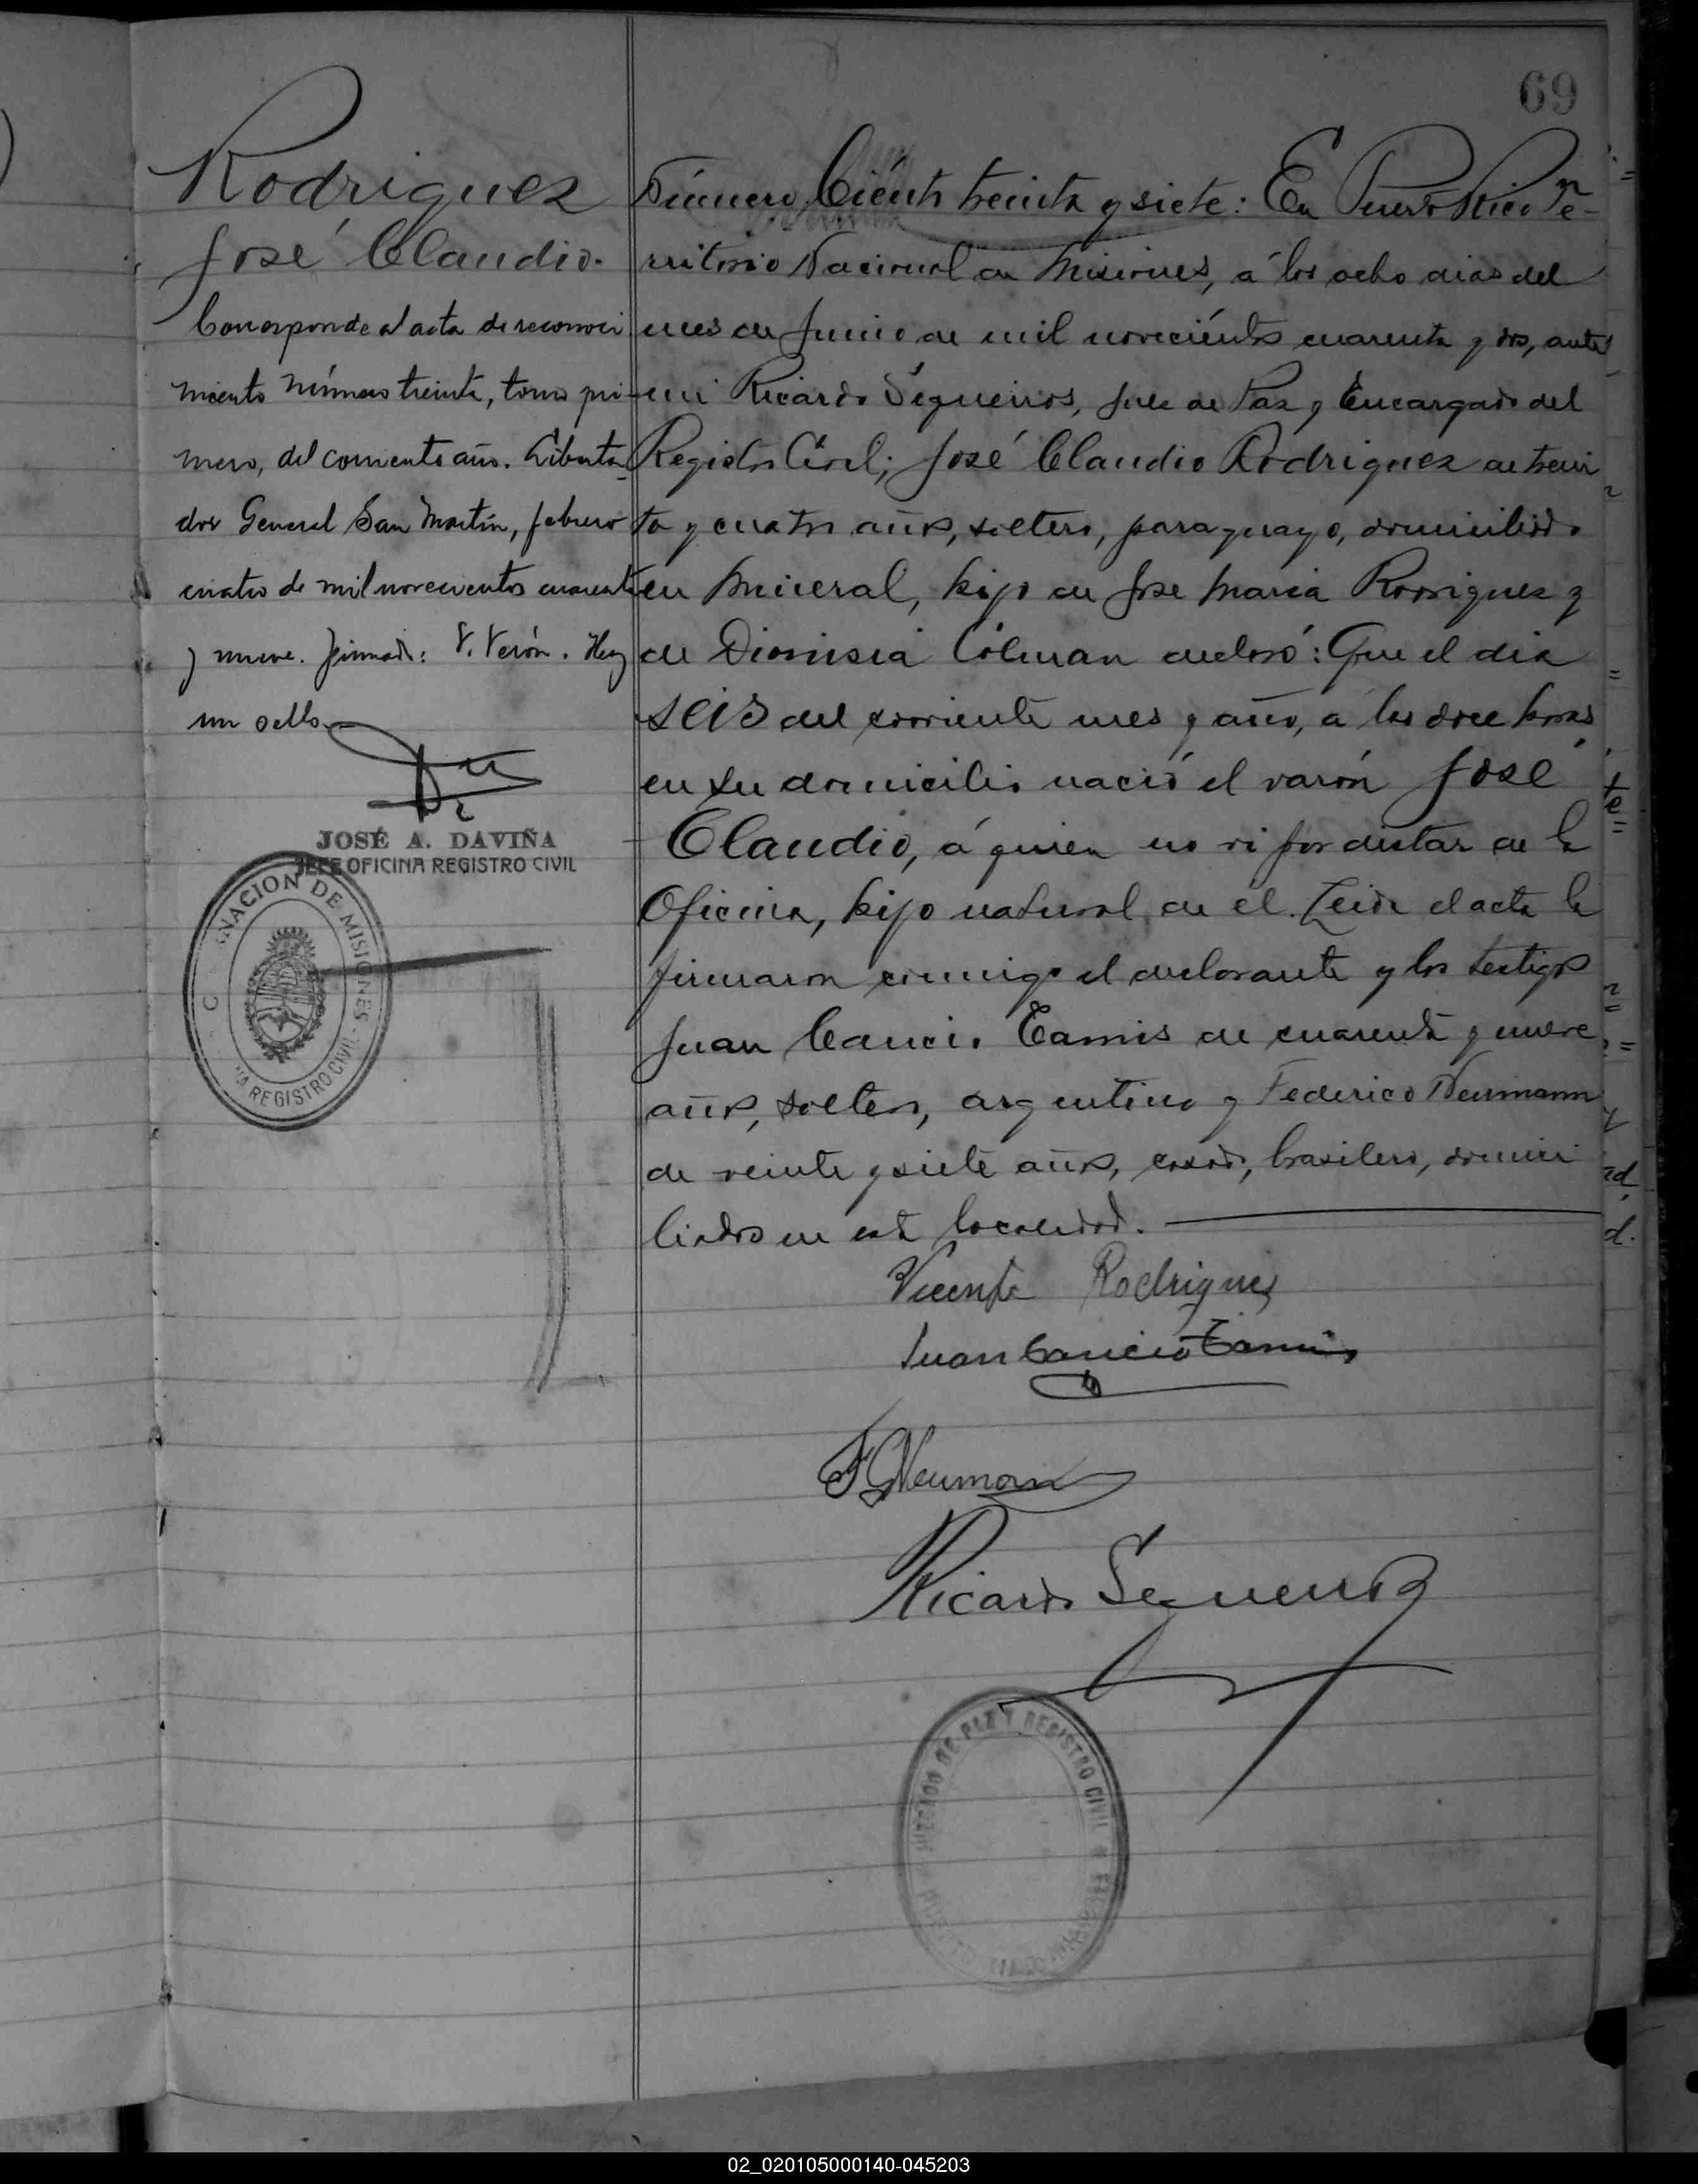 69
Rodriguez
José Claudio.
Corresponde al acta de reconoci
miento número treinta, tomo pri-
mero, del corriente año. Liberta-
dor General San Martín, febrero
cuatro de mil novecientos cuarenta
y nueve. firmado: V. Verón. Hay
un sello
JOSÉ A. DAVIÑA
JEFE OFICINA REGISTRO CIVIL
NACION DE MISIONES
REGISTRO CIVIL
Número Ciento treinta y siete: En Puerto Rico Te-
rritorio Nacional de Misiones, á los ocho dias del
mes de Junio de mil novecientos cuarenta y dos, ante
mi Ricardo Sequeiros, Juez de Paz y Encargado del
Registro Civil; José Claudio Rodriguez de trein
ta y cuatro años, soltero, paraguayo, domiciliado
en Mineral, hijo de Jose Maria Rodriguez y
de Dionisia Cólman declaró: Que el dia
seis del corriente mes y año, a las doce horas
en su domicilio nació el varón José
Claudio, á quien no vi por distar de la
Oficina, hijo natural de el. Leida el acta la
firmaron conmigo el declarante y los testigos
Juan Cancio Tamis de cuarenta y nueve
años, soltero, argentino y Federico Neumann
de veinte y siete años, casado, brasilero, domici
liados en esta localidad.
Vicente Rodriguez
Juan Cancio Tamis
F Neumann
Ricardo Sequeiros
JUZGADO DE PAZ Y REGISTRO CIVIL
02_020105000140-045203